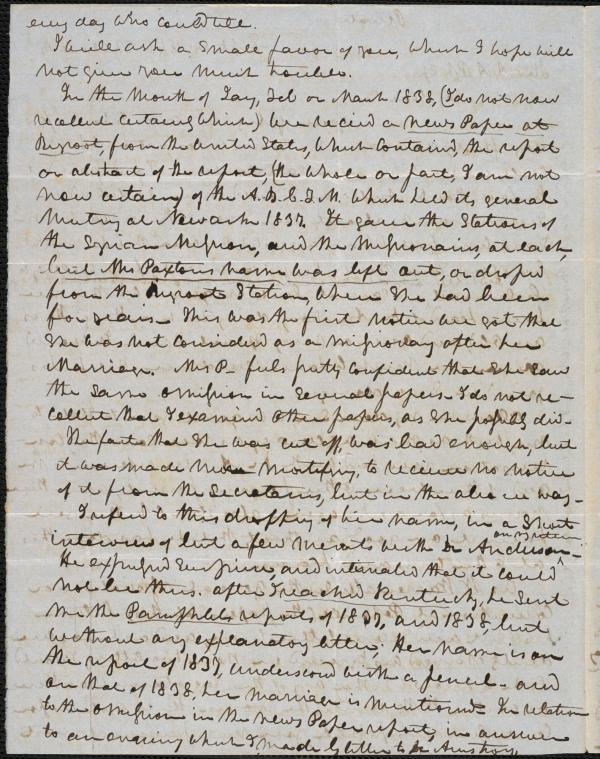 every day who could tell.
I will ask a small favor of you, which I hope will
not give you much trouble.
In the Month of Jay, Feb or March 1838, (I do not now
recollect certainly which) we recied a News Paper at
Beyroot, from the United States, which contained, the report
or abstract of the report, (the whole or part, I am not
now certain) of the A. B. C. F. M. which held its general
Meeting at Newark 1837. It gave the Stations of
the Syrian Mission, and the Missionaries, at each,
but Mrs Paxton's name was left out, or droped
from the Beyroot Station, where she had been
for years. This was the first notice we got that
she was not considered as a missionary after her
Marriage. Mrs P- feels pretty confident that she saw
the same omission in several papers. I do not re-
collect that I examined other papers, as she possibly did-
The fact that she was cut off, was bad enough, but
it was made more mortifying, to receive no notice
of it from the Secretaries, but in the above way-
I refered to this droping of her name, in a short
interview of but a few minutes with Dr Anderson-
He expressed surprise, and intimated that it could
not be thus. after I reached Kentucky, he sent
me the Pamphlet reports of 1837, and 1838, but
without any explanatory letter. Her name is on
the report of 1837, underscored with a pencil- and
on that of 1838, her marriage is mentioned- In relation
to the omission in the News Paper reports, in answer
to an enquiry which I made by letter to Dr Armstrong,